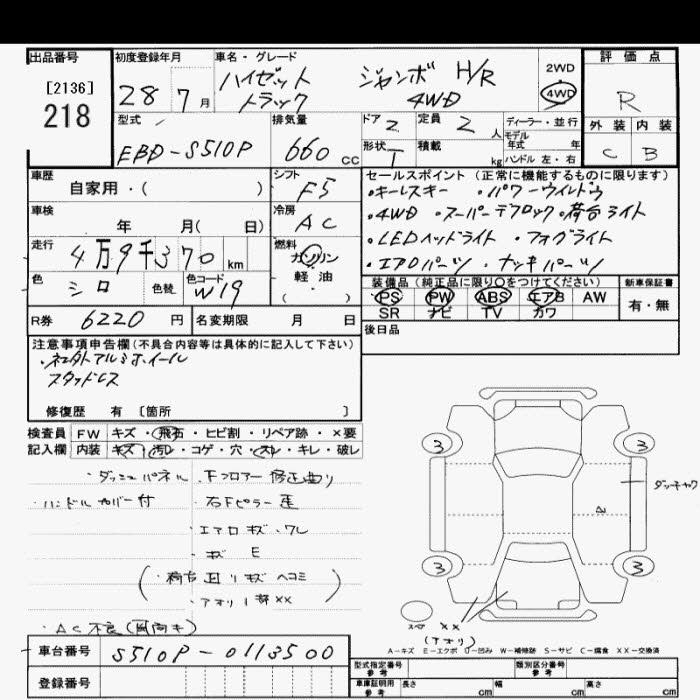 出品番号
[2136]
218
初度登録年月
28 7 月
車名・グレード
ハイゼット ジャンボ H/R
トラック 4WD
2WD
4WD
評価点
R
外装 内装
C B
型式
EBD-S510P
排気量
660 cc
ドア 2
定員 2 人
形状 T
積載 kg
ディーラー・並行
モデル
年式 年
ハンドル 左・右
車歴
自家用・( )
シフト
F5
車検
年 月( 日)
冷房
AC
走行
4万9千370 km
燃料
ガソリン
軽・油
( )
色
シロ
色替
色コード
W19
セールスポイント (正常に機能するものに限ります)
・キーレスキー ・パワーウインドウ
・4WD ・スーパーデフロック・荷台ライト
・LEDヘッドライト ・フォグライト
・エアロパーツ ・メッキパーツ
装備品 (純正品に限り○をつけてください)
PS PW ABS エアB AW
SR ナビ TV カワ
新車保証書
有・無
R券 6220 円
名変期限 月 日
後日品
注意事項申告欄(不具合内容等は具体的に記入して下さい)
・社外アルミホイール
スタッドレス
修復歴 有 [箇所 ]
検査員 FW キズ・飛石・ヒビ割・リペア跡・×要
記入欄 内装 キズ・汚レ・コゲ・穴・スレ・キレ・破レ
・ダッシュパネル ・下フロアー 修正曲り
・ハンドルカバー付 ・右Fピラー歪
・エアロ キズ・ワレ
・キズ E
(・荷台凹リキズヘコミ)
・アオリ1部××
・AC不良(風向キ)
3 3
3 3
××
(アオリ)
A=キズ E=エクボ U=凹み W=補修跡 S=サビ C=腐食 XX=交換済
車台番号 S510P-0113500
登録番号
型式指定番号 参考
類別区分番号 参考
車庫証明用 参考 長さ cm 幅 cm 高さ cm